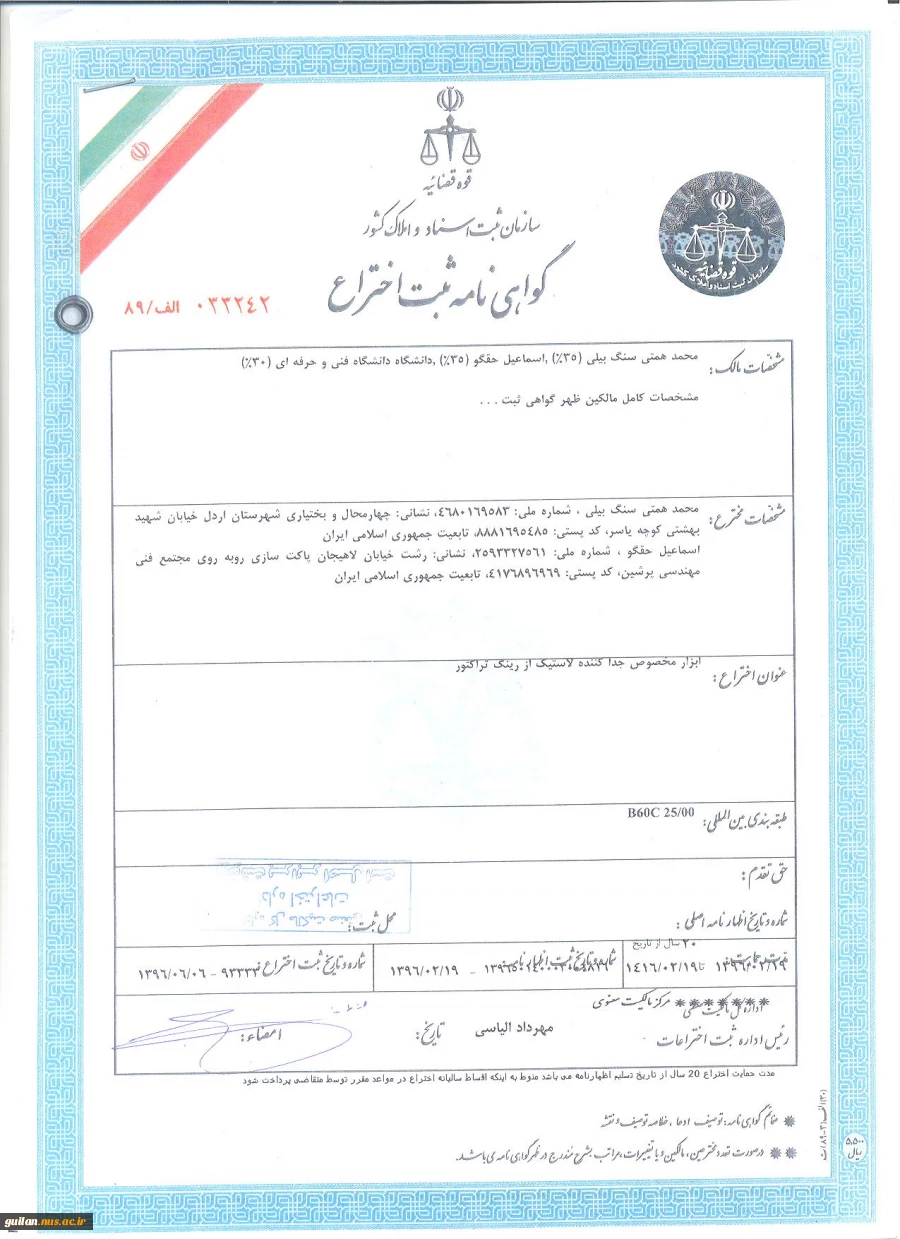 قوه قضائیه
سازمان ثبت اسناد و املاک کشور
گواهی نامه ثبت اختراع
قوه قضائیه
سازمان ثبت اسناد و املاک کشور
۰۳۳۲۴۲ الف/۸۹
مشخصات مالک: محمد همتی سنگ بیلی (۳۵٪) ,اسماعیل حقگو (۳۵٪) ,دانشگاه دانشگاه فنی و حرفه ای (۳۰٪)
مشخصات کامل مالکین ظهر گواهی ثبت . . .
مشخصات مخترع: محمد همتی سنگ بیلی ، شماره ملی: ٤٦٨٠١٦٩٥٨٣، نشانی: چهارمحال و بختیاری شهرستان اردل خیابان شهید
بهشتی کوچه یاسر، کد پستی: ٨٨٨١٦٩٥٤٨٥، تابعیت جمهوری اسلامی ایران
اسماعیل حقگو ، شماره ملی: ٢٥٩٣٣٢٧٥٦١، نشانی: رشت خیابان لاهیجان پاکت سازی روبه روی مجتمع فنی
مهندسی پرشین، کد پستی: ٤١٧٦٨٩٦٩٦٩، تابعیت جمهوری اسلامی ایران
عنوان اختراع: ابزار مخصوص جدا کننده لاستیک از رینگ تراکتور
طبقه بندی بین المللی: B60C 25/00
حق تقدم:
شماره و تاریخ اظهارنامه اصلی:
محل ثبت:
اداره کل مالکیت صنعتی
اداره اختراعات
۲۰ سال از تاریخ
۱۳۹۶/۰۲/۱۹ تا ۱۴۱۶/۰۲/۱۹
شماره و تاریخ ثبت اظهارنامه - ۱۳۹۶/۰۲/۱۹
شماره و تاریخ ثبت اختراع ۹۳۳۳۴ - ۱۳۹۶/۰۶/۰۶
مرکز مالکیت معنوی
رئیس اداره ثبت اختراعات
مهرداد الیاسی
تاریخ:
امضاء:
مدت حمایت اختراع 20 سال از تاریخ تسلیم اظهارنامه می باشد منوط به اینکه اقساط سالیانه اختراع در مواعد مقرر توسط متقاضی پرداخت شود
✱ ضمائم گواهی نامه: توصیف ادعا، خلاصه توصیف و نقشه
✱✱ درصورت تعدد مخترعین، مالکین و یا تغییرات، مراتب بشرح مندرج در ظهر گواهی نامه می باشد.
۵۵۰۰ ریال
guilan.nus.ac.ir